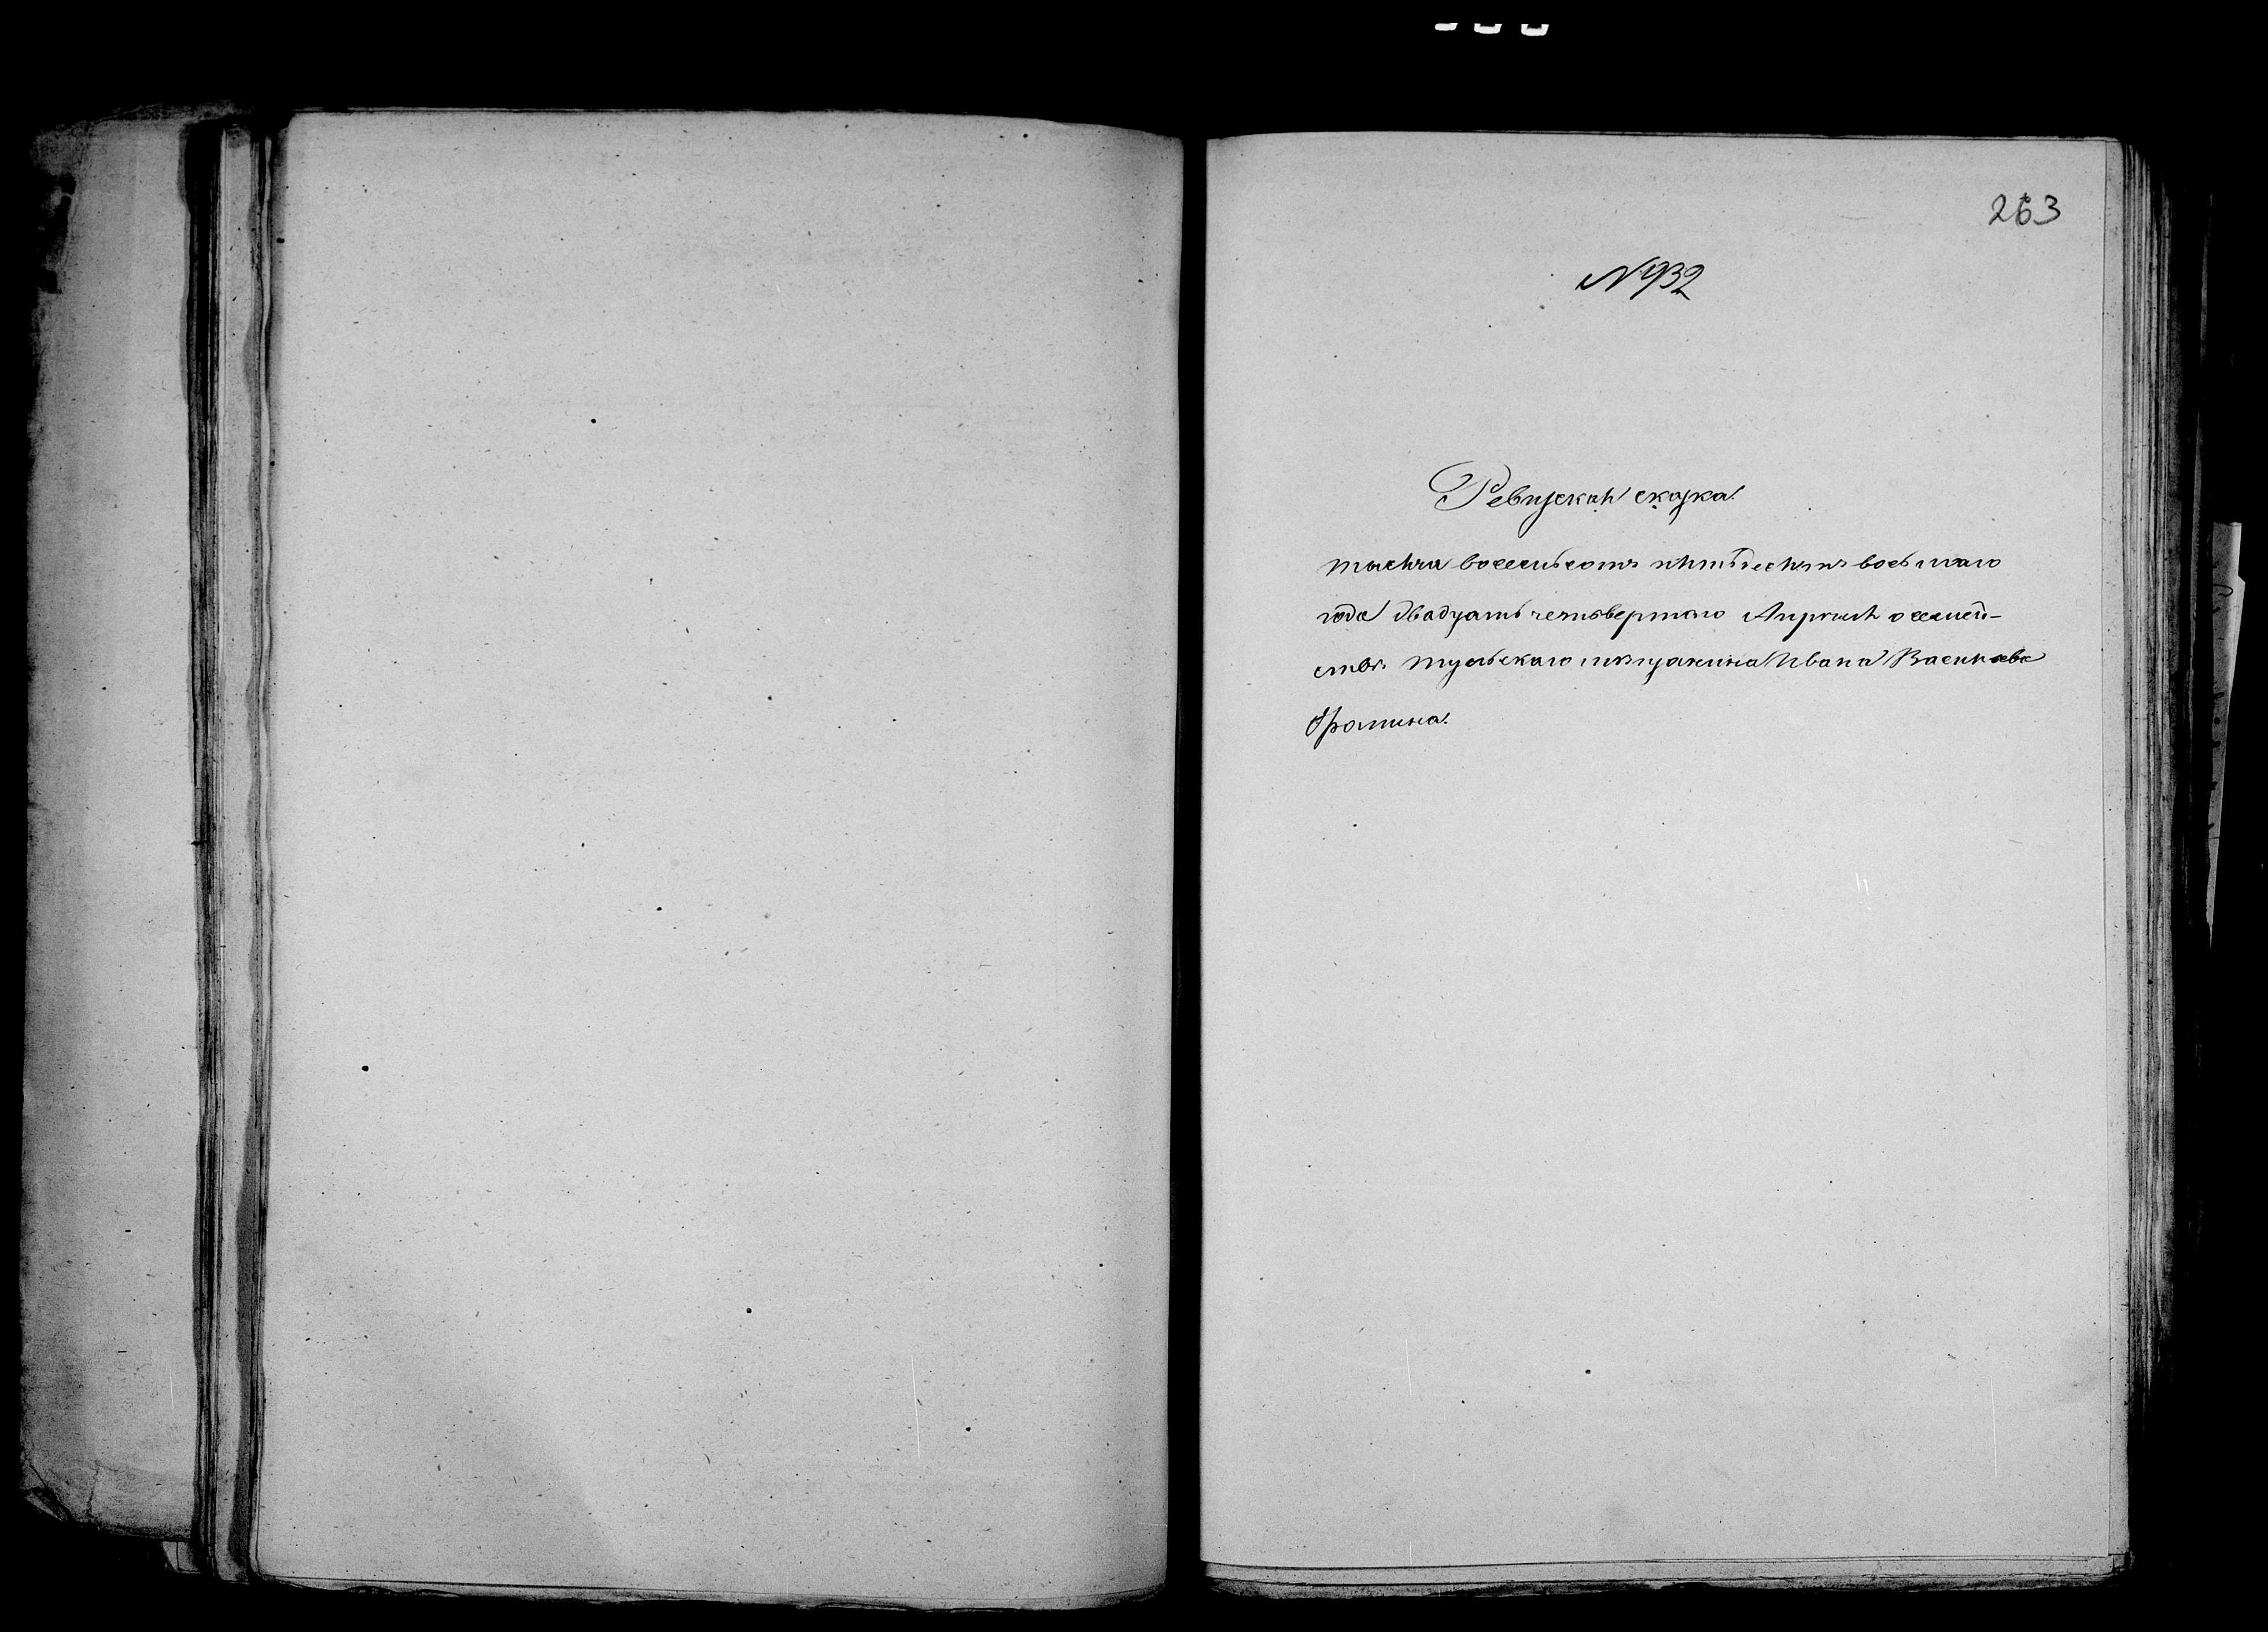 263
N 932
Ревизская сказка
тысяча восемьсотъ пятьдесятъ восьмаго
года двадцать четвертаго Апреля о семей-
ствѣ тульскаго мѣщанина Ивана Васильева
Фролина.